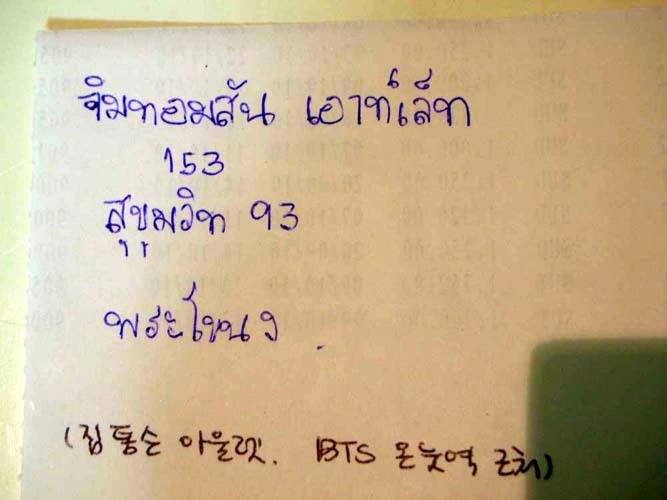 จิมทอมสัน เอาท์เล็ท
153
สุขุมวิท 93
พระโขนง
(짐톰슨 아울렛. BTS 온눗역 근처)